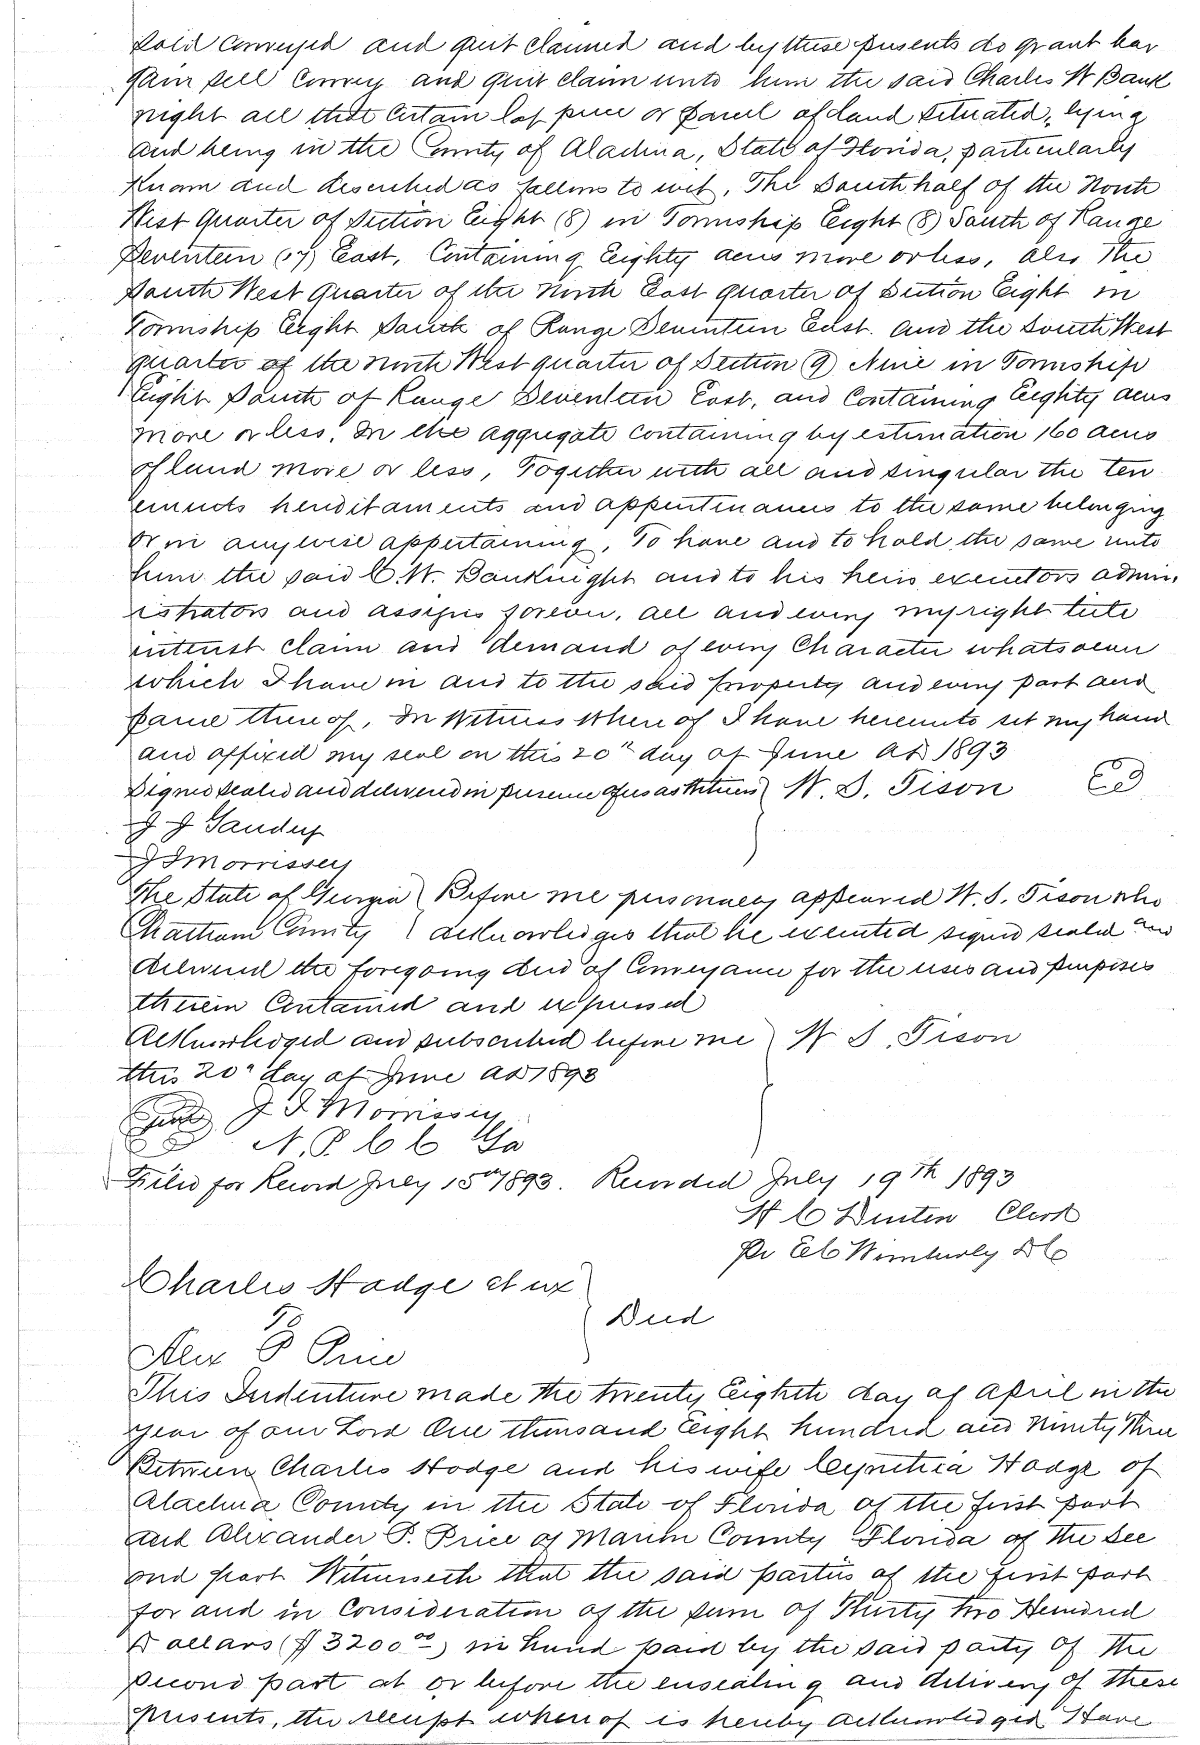 sold conveyed and quit claimed and by these presents do grant bar
gain sell convey and quit claim unto him the said Charles W Bank
night all that certain lot piece or parcel of land situated, lying
and being in the County of Alachua, State of Florida, particularly
known and described as follows to wit, The South half of the North
West quarter of Section Eight (8) in Township Eight (8) South of Range
Seventeen (17) East, Containing Eighty acres more or less, also the
South West quarter of the North East quarter of Section Eight in
Township Eight South of Range Seventeen East. and the South West
quarter of the North West quarter of Section (9) Nine in Township
Eight South of Range Seventeen East, and Containing Eighty acres
more or less, In the aggregate containing by estimation 160 acres
of land more or less, Together with all and singular the ten
ements hereditaments and appurtenances to the same belonging
or in anywise appertaining, To have and to hold the same unto
him the said C. W. Banknight and to his heirs executors admin
istrators and assigns forever, all and every my right title
interest claim and demand of every Character whatsoever
which I have in and to the said property and every part and
parcel thereof, In Witness Whereof I have hereunto set my hand
and affixed my seal on this 20th day of June AD 1893
Signed sealed and delivered in presence of us as Witness } W. S. Tison
J J Gaudry
J J Morrissey
The State of Georgia } Before me personally appeared W. S. Tison who
Chatham County } acknowledges that he executed signed sealed and
delivered the foregoing deed of Conveyance for the uses and purposes
therein Contained and expressed
Acknowledged and subscribed before me } W S. Tison
this 20th day of June AD 1893
Seal J J Morrissey
N. P. C C Ga
Filed for Record July 15th 1893. Recorded July 19th 1893
H C Denton Clerk
Pr E C Wimberly D C
Charles Hodge et ux
To } Deed
Alex P Price
This Indenture made the twenty Eighth day of April in the
year of our Lord One thousand Eight hundred and Ninety Three
Between Charles Hodge and his wife Cynthia Hodge of
Alachua County in the State of Florida of the first part
and Alexander P. Price of Marion County Florida of the sec
ond part Witnesseth that the said parties of the first part
for and in Consideration of the sum of Thirty two Hundred
Dollars ($3200 00) in hand paid by the said party of the
second part at or before the ensealing and delivery of these
presents, the receipt whereof is hereby acknowledged Have